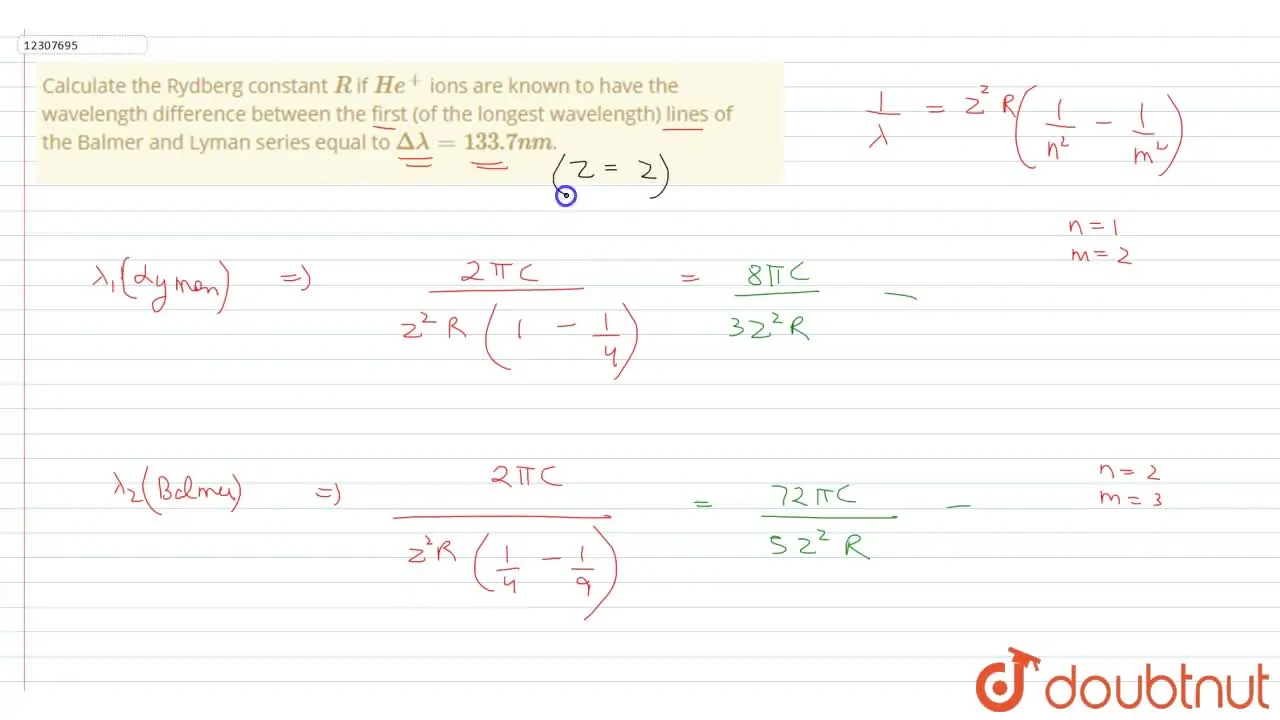 12307695
Calculate the Rydberg constant R if He⁺ ions are known to have the
wavelength difference between the first (of the longest wavelength) lines of
the Balmer and Lyman series equal to Δλ = 133.7nm.
(Z = 2)
1/λ = Z² R (1/n² − 1/m²)
n = 1
m = 2
λ₁(Lyman) ⇒ 2πC / Z² R (1 − 1/4) = 8πC / 3Z²R −
λ₂(Balmer) ⇒ 2πC / Z²R (1/4 − 1/9) = 72πC / 5Z² R −
n = 2
m = 3
doubtnut